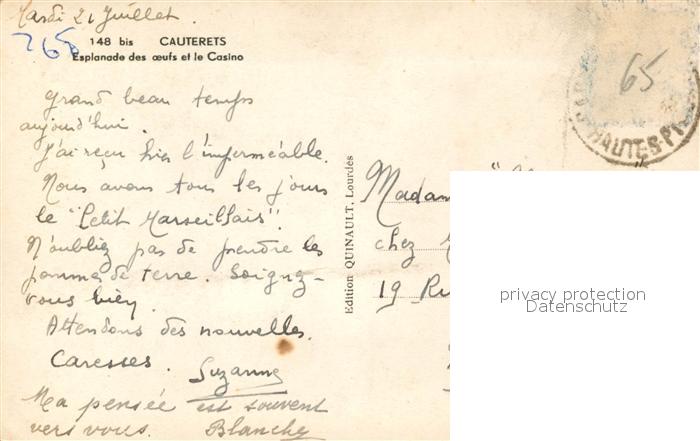 Mardi 21 Juillet.
765
148 bis CAUTERETS
Esplanade des œufs et le Casino
65
HAUTES-PY
Grand beau temps
aujourd'hui.
J'ai reçu hier l'imperméable.
Nous avons tous les jours
le "Petit Marseillais".
N'oubliez pas de prendre les
pommes de terre. Soignez-
vous bien.
Attendons des nouvelles.
Caresses. Suzanne
Ma pensée est souvent
vers vous. Blanche
Edition QUINAULT, Lourdes
Madam
chez
19 Ru
privacy protection
Datenschutz